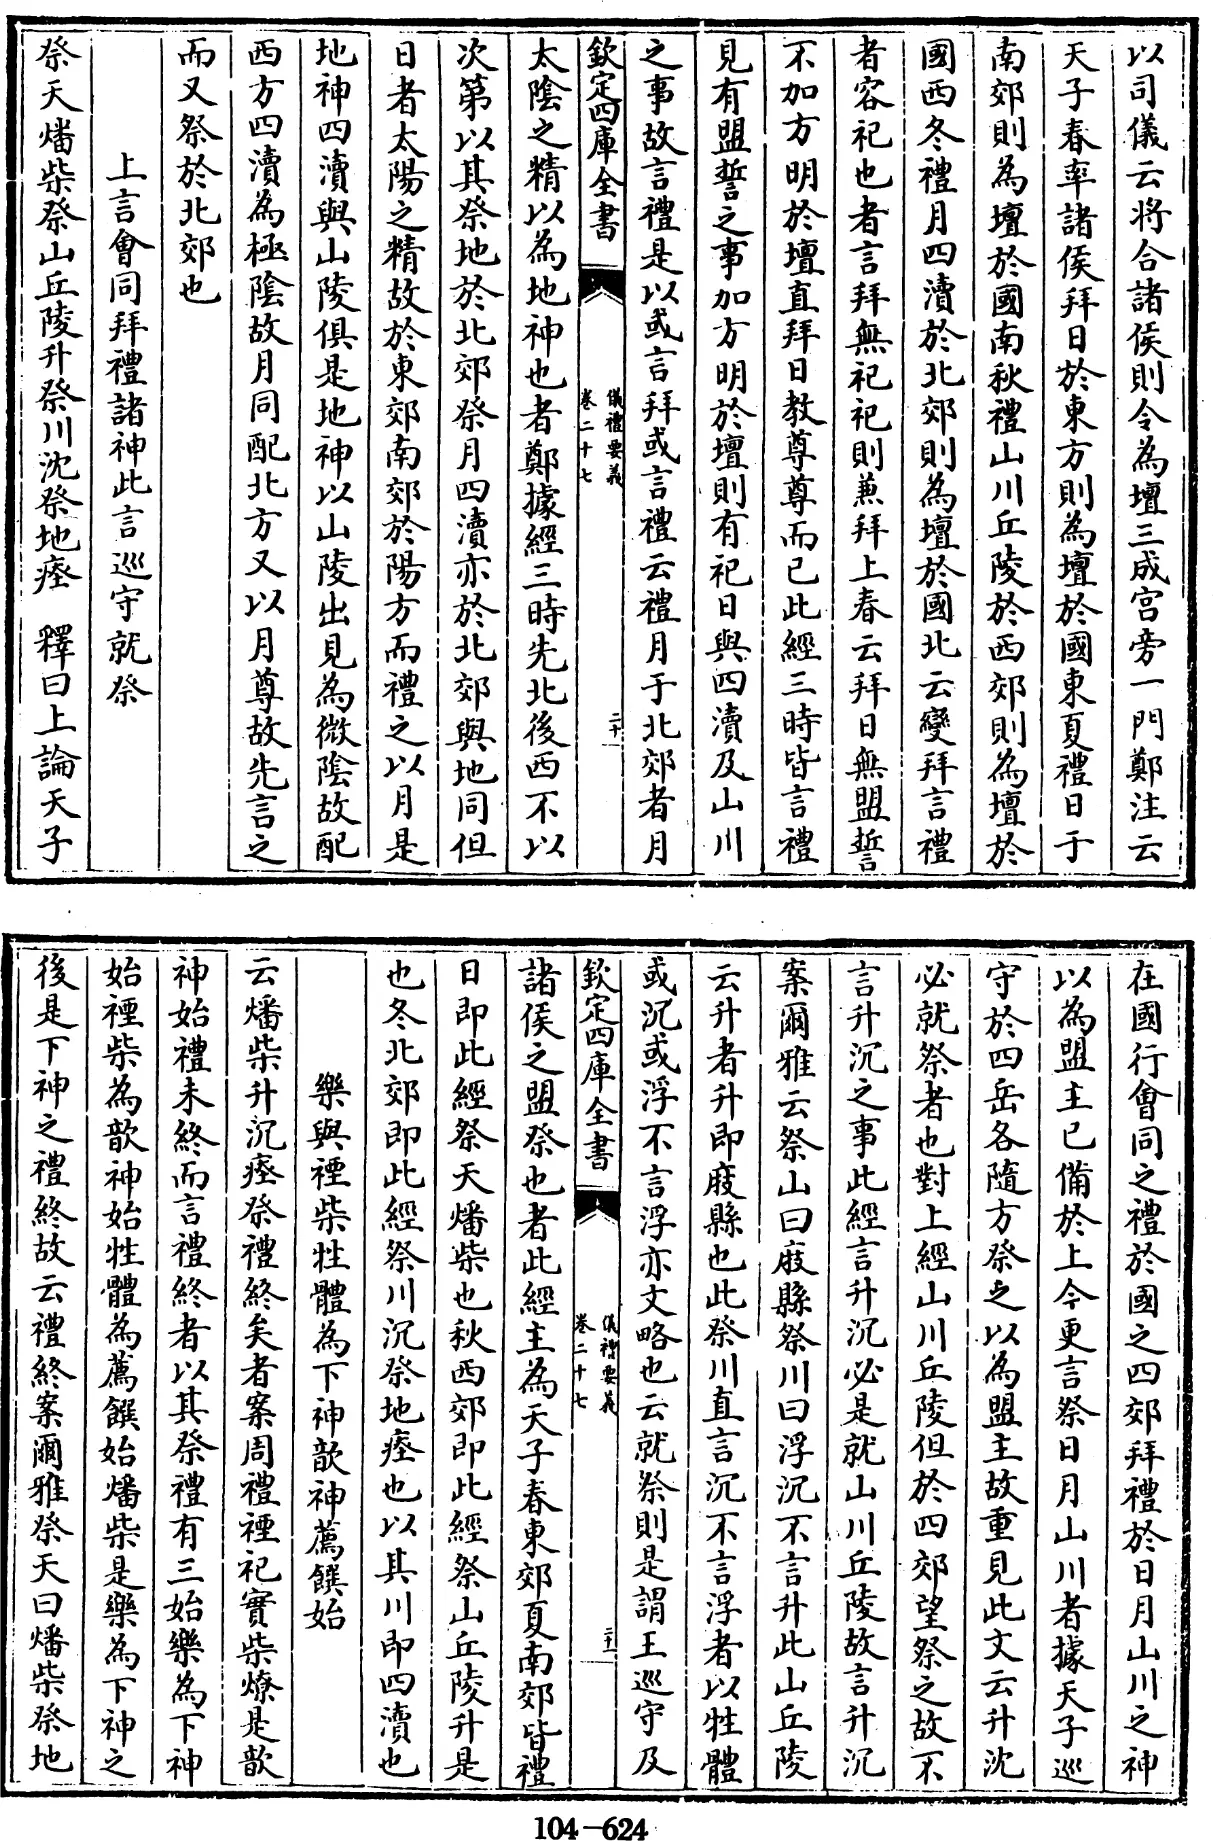 以司儀云将合諸侯則令為壇三成宫旁一門鄭注云
天子春率諸侯拜日於東方則為壇於國東夏禮日于
南郊則為壇於國南秋禮山川丘陵於西郊則為壇於
國西冬禮月四瀆於北郊則為壇於國北云變拜言禮
者容祀也者言拜無祀祀則兼拜上春云拜日無盟誓
不加方明於壇直拜日教尊尊而已此經三時皆言禮
見有盟誓之事加方明於壇則有祀日與四瀆及山川
之事故言禮是以或言拜或言禮云禮月于北郊者月
欽定四庫全書
儀禮要義
卷二十七
二十
太陰之精以為地神也者鄭據經三時先北後西不以
次第以其祭地於北郊祭月四瀆亦於北郊與地同但
日者太陽之精故於東郊南郊於陽方而禮之以月是
地神四瀆與山陵俱是地神以山陵出見為微陰故配
西方四瀆為極陰故月同配北方又以月尊故先言之
而又祭於北郊也
上言會同拜禮諸神此言巡守就祭
祭天燔柴祭山丘陵升祭川沈祭地瘞　釋曰上論天子
在國行會同之禮於國之四郊拜禮於日月山川之神
以為盟主已備於上今更言祭日月山川者據天子巡
守於四岳各隨方祭之以為盟主故重見此文云升沈
必就祭者也對上經山川丘陵但於四郊望祭之故不
言升沉之事此經言升沉必是就山川丘陵故言升沉
案爾雅云祭山曰庪縣祭川曰浮沉不言升此山丘陵
云升者升即庪縣也此祭川直言沉不言浮者以牲體
或沉或浮不言浮亦文略也云就祭則是謂王巡守及
欽定四庫全書
儀禮要義
卷二十七
二十一
諸侯之盟祭也者此經主為天子春東郊夏南郊皆禮
日即此經祭天燔柴也秋西郊即此經祭山丘陵升是
也冬北郊即此經祭川沉祭地瘞也以其川即四瀆也
樂與禋柴牲體為下神歆神薦饌始
云燔柴升沉瘞祭禮終矣者案周禮禋祀實柴燎是歆
神始禮未終而言禮終者以其祭禮有三始樂為下神
始禋柴為歆神始牲體為薦饌始燔柴是樂為下神之
後是下神之禮終故云禮終案爾雅祭天曰燔柴祭地
104-624